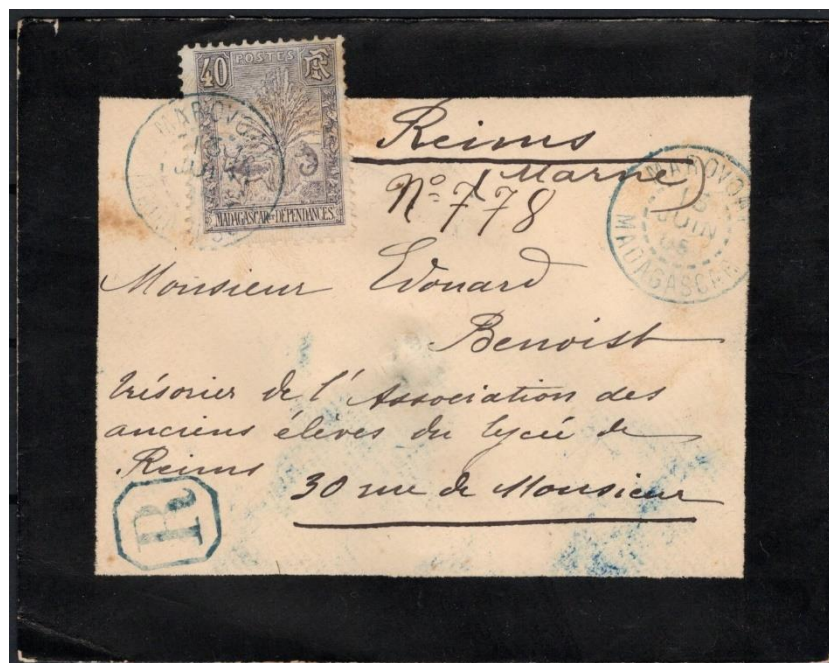 40 POSTES RF
MADAGASCAR ET DÉPENDANCES
MAROVOAY
MAROVOAY
JUIN
MADAGASCAR
Reims
Marne
No 778
Monsieur Edouard
Benoist
trésorier de l'Association des
anciens élèves du lycée de
Reims
30 rue de Monsieur
R